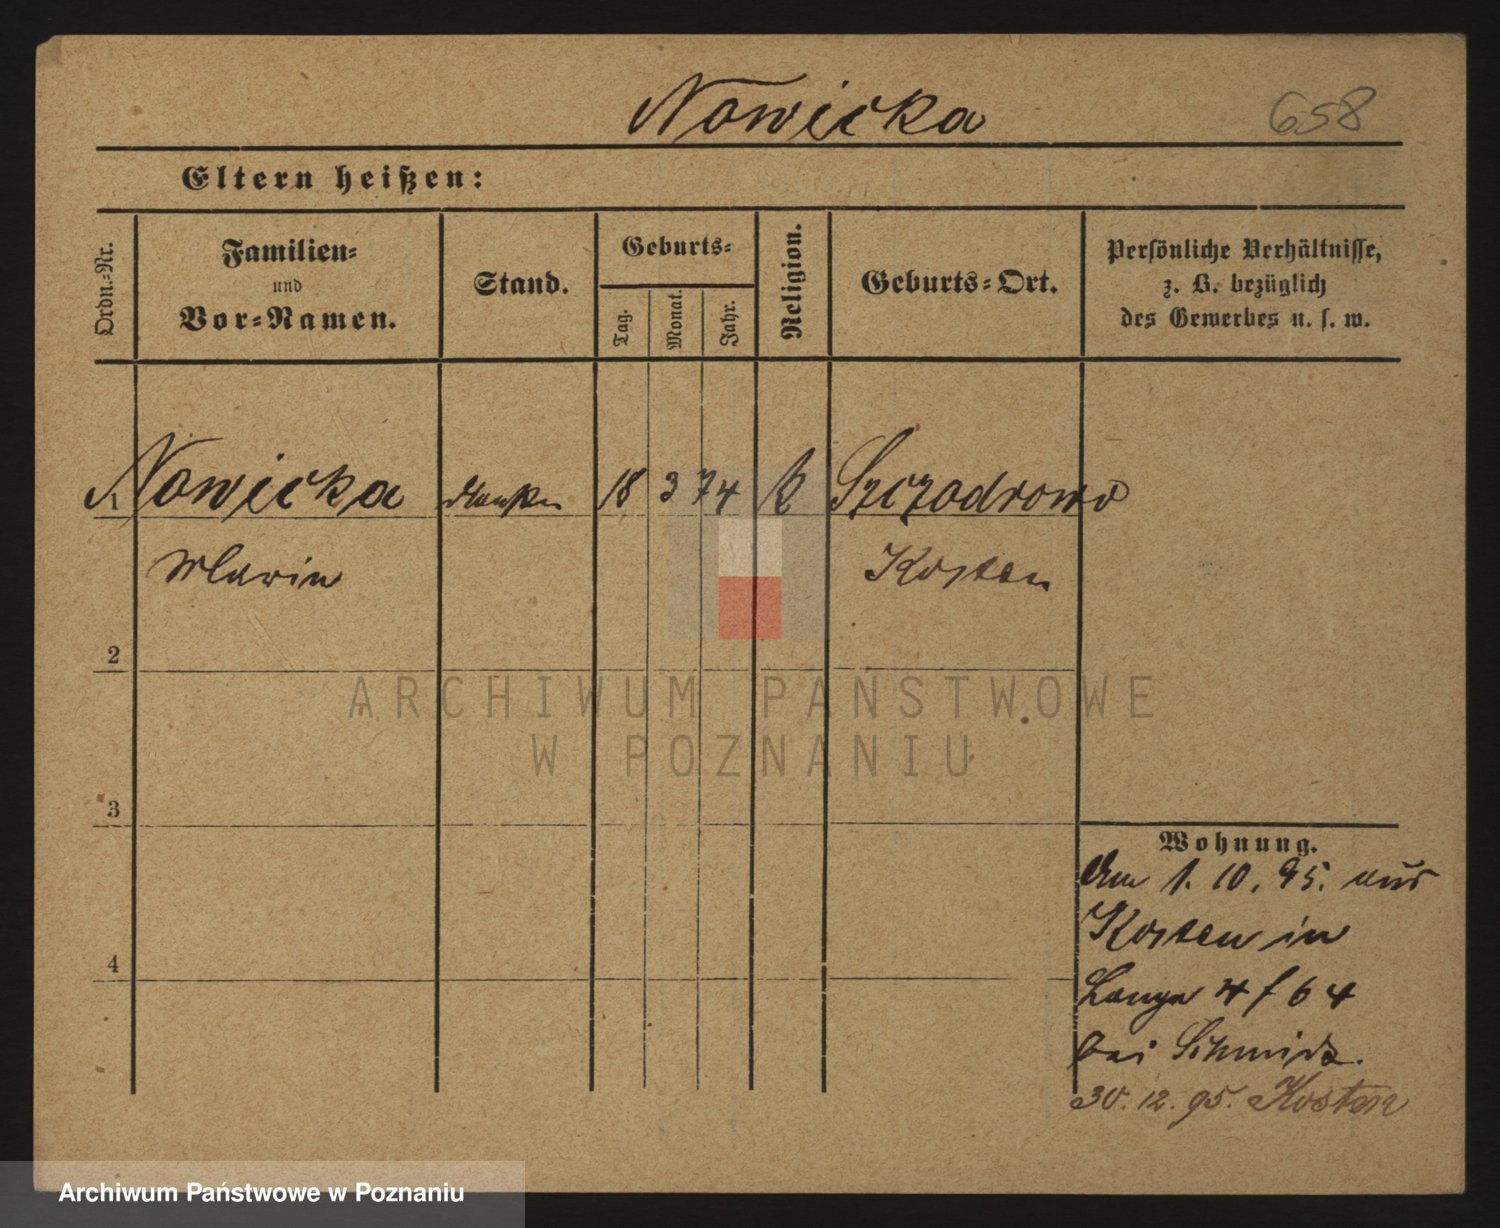 Nowicka 658
Eltern heißen:
Ordn.-Nr.
Familien-
und
Vor-Namen.
Stand.
Geburts-
Tag.
Monat.
Jahr.
Religion.
Geburts-Ort.
Persönliche Verhältnisse,
z. B. bezüglich
des Gewerbes u. s. w.
1 Nowicka 18 3 74 k Szczodrowo
Marie Kosten
2
ARCHIWUM PAŃSTWOWE
W POZNANIU
3
4
Wohnung.
Am 1. 10. 95. aus
Kosten in
Lange 4 64
bei Schmidt.
30. 12. 95. Kosten
Archiwum Państwowe w Poznaniu